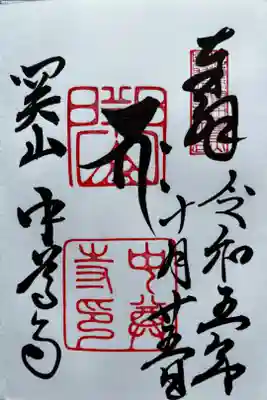 奉拝
令和五年
十月廿五日
関山
中尊寺
中尊寺印